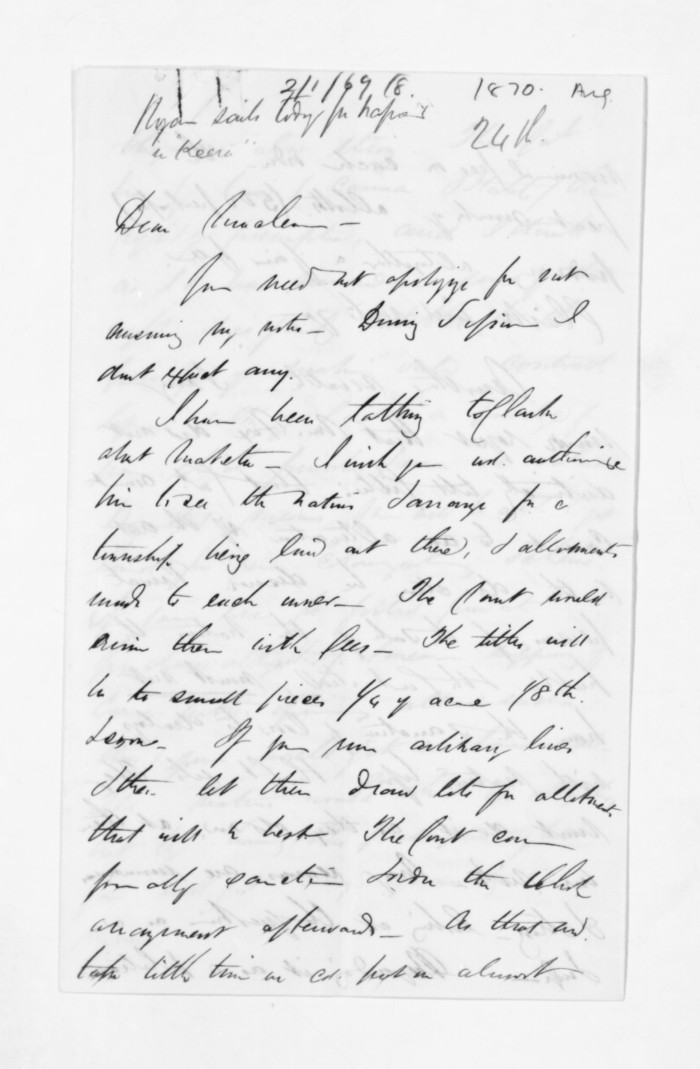 1870. Aug.
24th.
sails today for Napier
in "Keera"
Dear McLean –
You need not apologize for not
answering my notes – During Session I
dont expect any.
I have been talking to Clarke
about Maketu – I wish you wd. authorise
him to see the natives & arrange for a
township being laid out there, & allotments
made to each owner – The Court would
them with fees – The titles will
be to small pieces 1/4 of acre 1/8th.
& so on – If you run arbitrary lines
& then let them draw lots for allotments
that will be best – The Court can
formally sanction & order the whole
arrangement afterwards – As that wd.
take little time we cd. put on almost